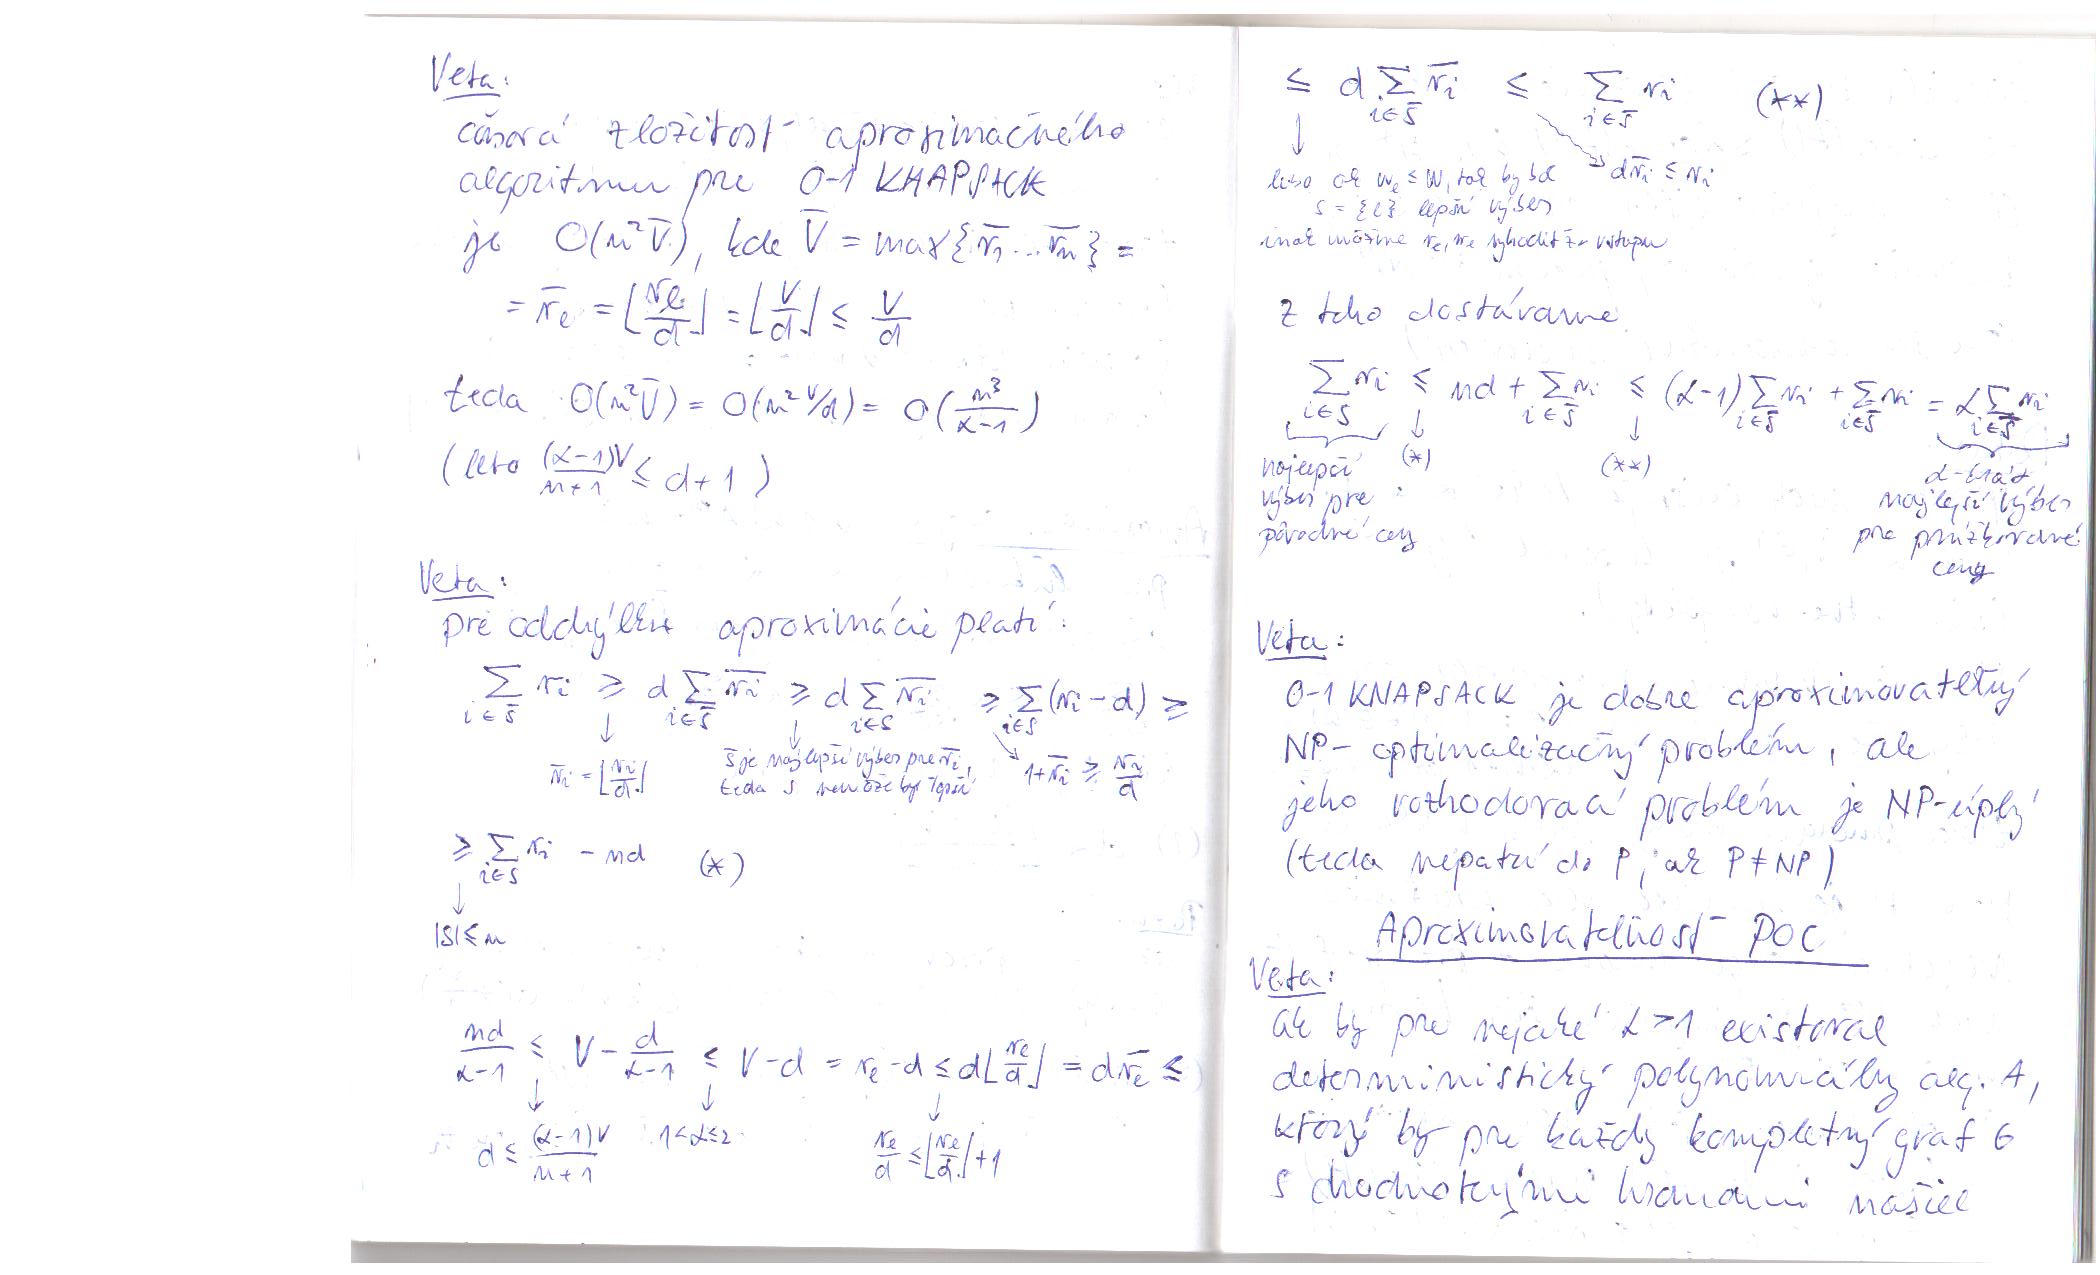 Veta:
časová zložitosť aproximačného
algoritmu pre 0-1 KNAPSACK
je O(n²V̄), kde V̄ = max{v̄₁ ... v̄ₙ} =
= v̄ₑ = ⌊vₑ/d⌋ = ⌊V/d⌋ ≤ V/d
teda O(n²V̄) = O(n² V/d) = O(n³/(α-1))
(lebo (α-1)V/(n+1) ≤ d+1)
Veta:
pre odchýlku aproximácie platí:
∑_{i∈S̄} vᵢ ≥ d∑_{i∈S̄} v̄ᵢ ≥ d∑_{i∈S} v̄ᵢ ≥ ∑_{i∈S}(vᵢ - d) ≥
v̄ᵢ = ⌊vᵢ/d⌋
S̄ je najlepší výber pre v̄ᵢ,
teda S nemôže byť lepší
1+v̄ᵢ ≥ vᵢ/d
≥ ∑_{i∈S} vᵢ - nd (*)
|S| ≤ n
nd/(α-1) ≤ V - d/(α-1) ≤ V-d = vₑ-d ≤ d⌊vₑ/d⌋ = dv̄ₑ ≤
d ≤ (α-1)V/(n+1)
1<α≤2
vₑ/d ≤ ⌊vₑ/d⌋+1
≤ d∑_{i∈S̄} v̄ᵢ ≤ ∑_{i∈S̄} vᵢ (**)
dv̄ᵢ ≤ vᵢ
lebo ak wₑ ≤ W, tak by bol
S = {e} lepší výber
inak môžme vₑ, wₑ vyhodiť zo vstupu
z toho dostávame
∑_{i∈S} vᵢ ≤ nd + ∑_{i∈S̄} vᵢ ≤ (α-1)∑_{i∈S̄} vᵢ + ∑_{i∈S̄} vᵢ = α∑_{i∈S̄} vᵢ
najlepší
výber pre
pôvodné ceny
(*)
(**)
α-krát
najlepší výber
pre
ceny
Veta:
0-1 KNAPSACK je dobre aproximovateľný
NP-optimalizačný problém, ale
jeho rozhodovací problém je NP-úplný
(teda nepatrí do P, ak P≠NP)
Aproximovateľnosť POC
Veta:
ak by pre nejaké α>1 existoval
deterministický polynomiálny alg. A,
ktorý by pre každý kompletný graf G
s hodnotenými hranami našiel